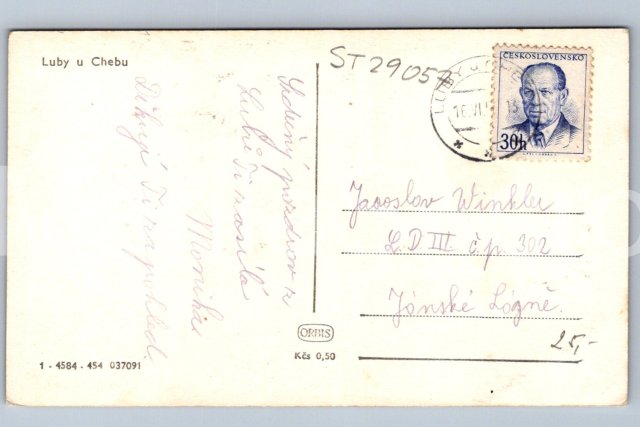 Luby u Chebu
ST 29057
LUBY U CHEBU
16.VI.
13
ČESKOSLOVENSKO
30h
Srdečný pozdrav z
Lubů Ti zasílá
Monika
Děkuji Ti za pohled.
Jaroslav Winkler
L D III č.p. 302
Jánské Lázně.
25,-
ORBIS
Kčs 0,50
1 - 4584 - 454 037091